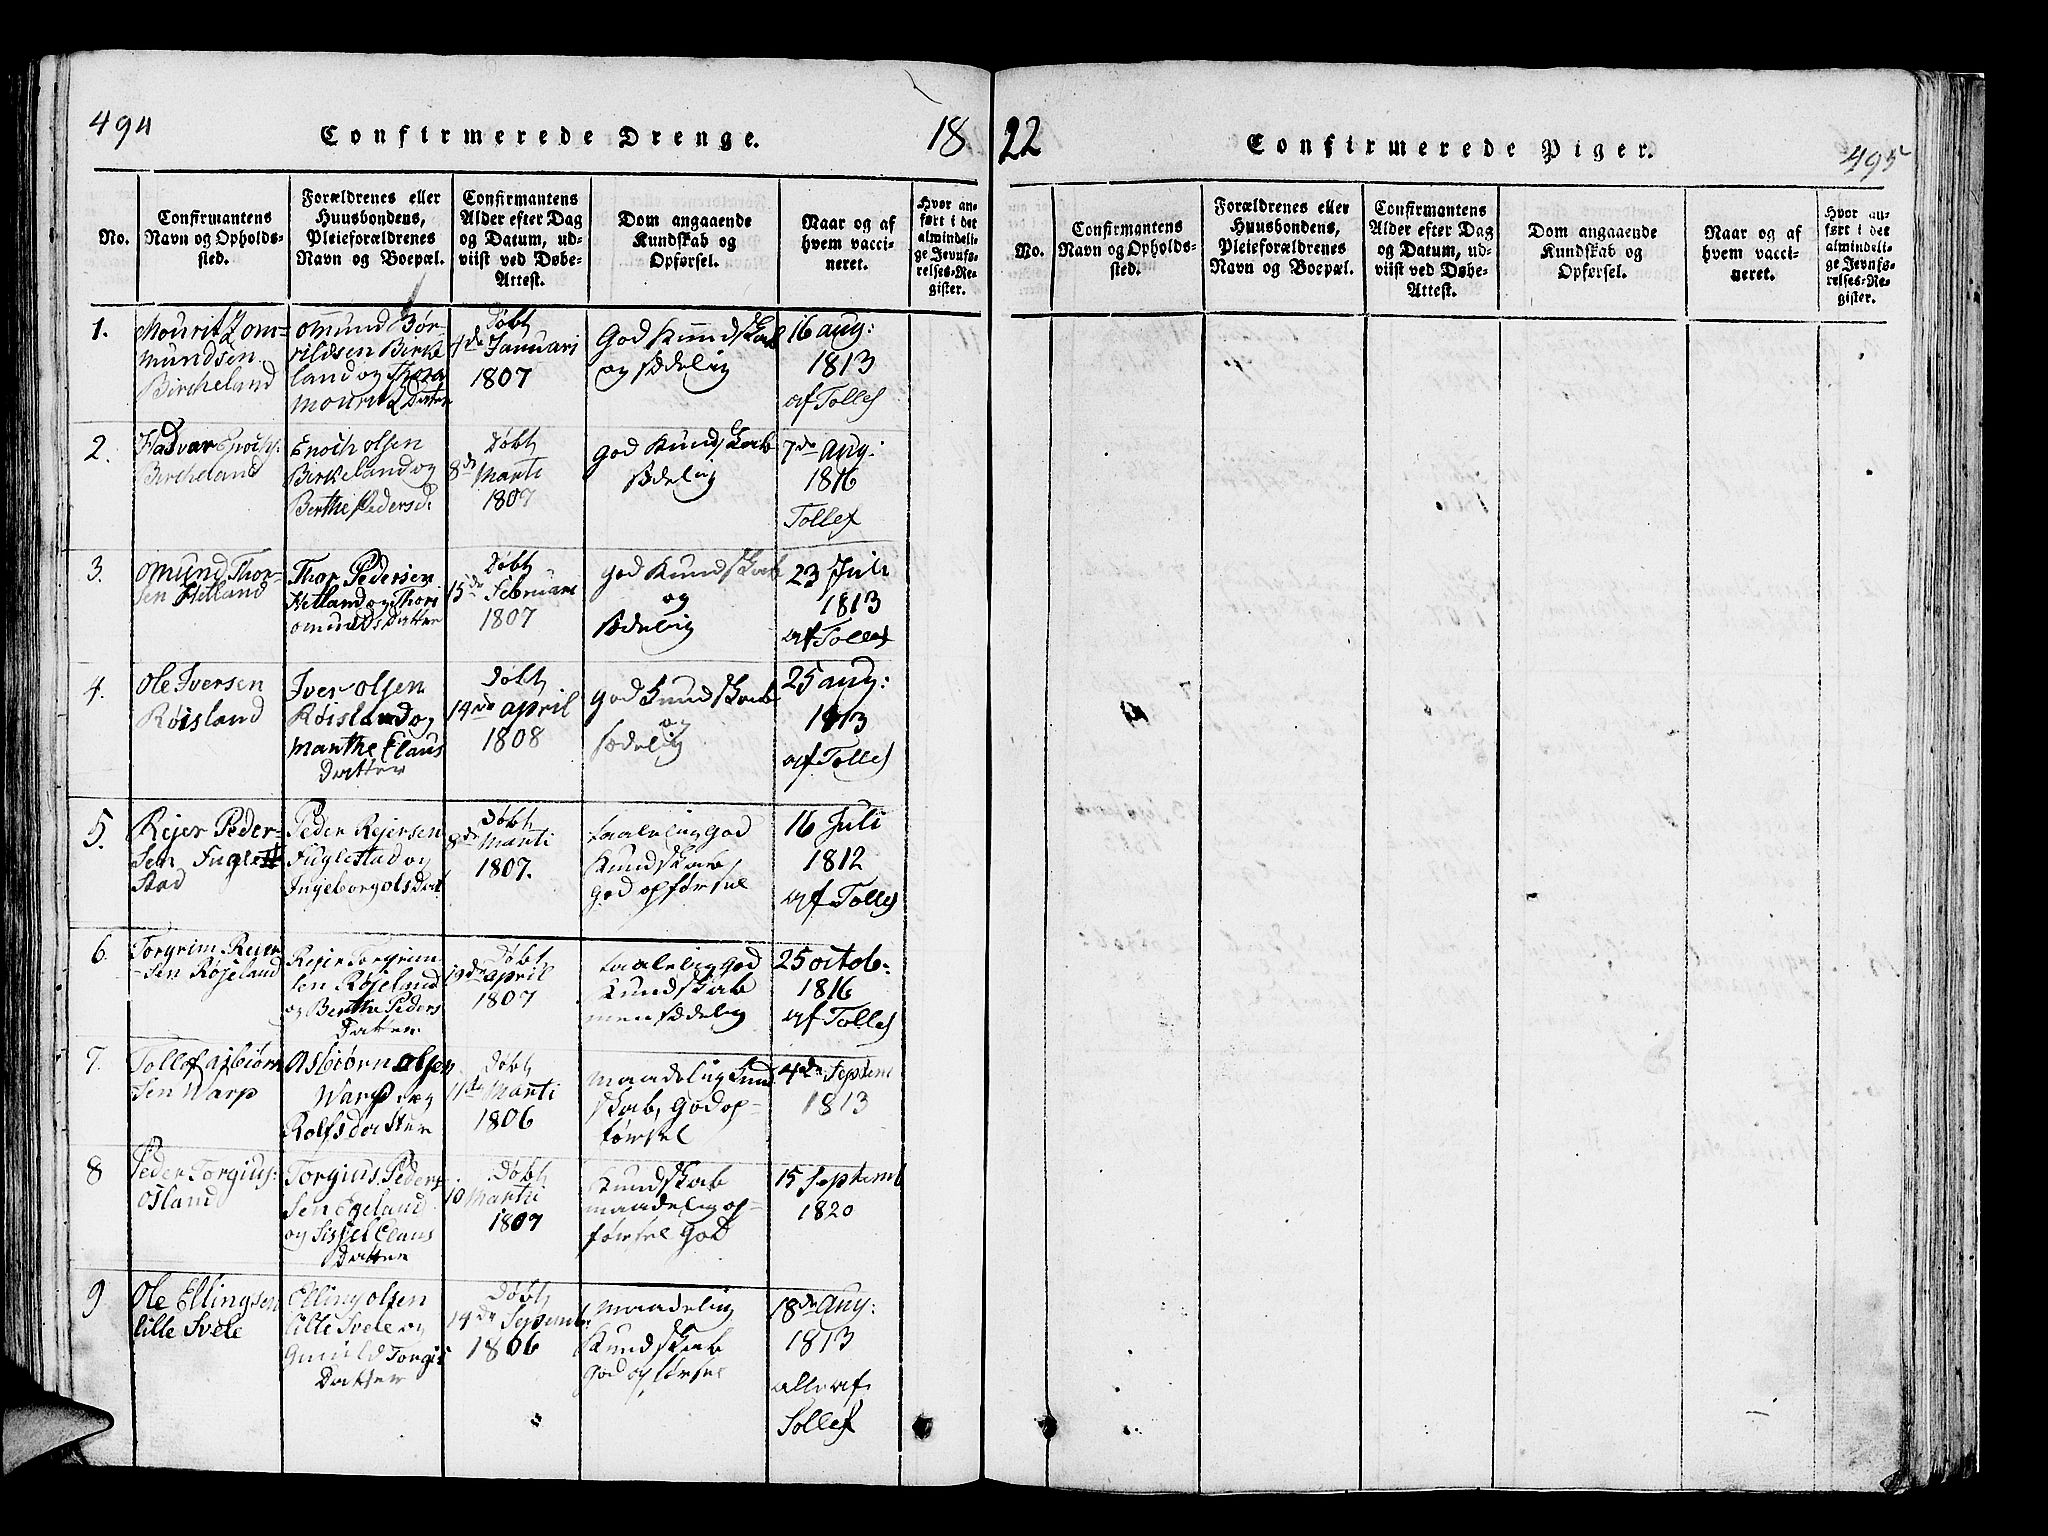 494
Confirmerede Drenge.
18
No.
Confirmantens
Navn og Opholds-
sted.
Forældrenes eller
Huusbondens,
Pleieforældrenes
Navn og Boepæl.
Confirmantens
Alder efter Dag
og Datum, ud-
viist ved Døbe-
Attest.
Dom angaaende
Kundskab og
Opførsel.
Naar og af
hvem vacci-
neret.
Hvor an-
ført i det
almindeli-
ge Jevnfø-
relses-Re-
gister.
1.
Mouritz om-
mundsen
Bircheland
omund Bør-
rildsen Birke
land og Thora
mouritz Dater
Døbt
1de Januari
1807
God Kundskab
og sædelig
16 aug:
1813
af Tollef
2.
Hadvar Enochs:
Bircheland
Enoch olsen
Birkeland og
Berthe Pedersd:
Døbt
8de Marti
1807
god Kundskab
sædelig
7de Aug:
1816
Tollef
3.
omund Thor-
sen Hetland
Thor Pedersen
Hetland og Thori
omunds Datter
Døbt
15de Februari
1807
god Kundskab
og
sædelig
23 Juli
1813
af Tollef
4.
Ole Iversen
Røisland
Iver olsen
Røisland og
Marthe Claus
Datter
Døbt
14de april
1808
god Kundskab
og
sædelig
25 aug:
1813
af Tollef
5.
Rejer Peder-
sen Fugle
stad
Peder Rejersen
Fuglestad og
Ingeborg ols Dat
Døbt
8de Marti
1807.
taalelig god
Kundskab,
god opførsel
16 Juli
1812
af Tollef
6.
Torgrim Reier
-sen Røjeland
Rejer Torgrim
sen Røjeland
og Berthe Peders
Datter
Døbt
19de april
1807
taalelig god
Kundskab
men sædelig
25 octob:
1816
af Tollef
7.
Tollef asbiørn
sen Warp
Asbiørn olsen
Warp og
Rolfsdatter
Døbt
11de Marti
1806
maadelig Kund
skab, God op-
førsel
4de Septem
1813
8
Peder Torgius:
osland
Torgius Peder
sen Egeland
og Sissel Claus
Datter
Døbt
10 Martii
1807
Kundskab
maadelig op-
førsel God
15 Septemb
1820
9
Ole Ellingsen
lille Svele
Elling olsen
lille Svele og
Gunild Torgis
Datter
Døbt
14de Septemb:
1806
maadelig
Kundskab
God opførsel
18de Aug:
1813
alle af
Tollef
22
Confirmerede Piger.
495
No.
Confirmantens
Navn og Opholds-
sted.
Forældrenes eller
Huusbondens,
Pleieforældrenes
Navn og Boepæl.
Confirmantens
Alder efter Dag
og Datum, ud-
viist ved Døbe-
Attest.
Dom angaaende
Kundskab og
Opførsel.
Naar og af
hvem vacci-
neret.
Hvor an-
ført i det
almindeli-
ge Jevnfø-
relses-Re-
gister.